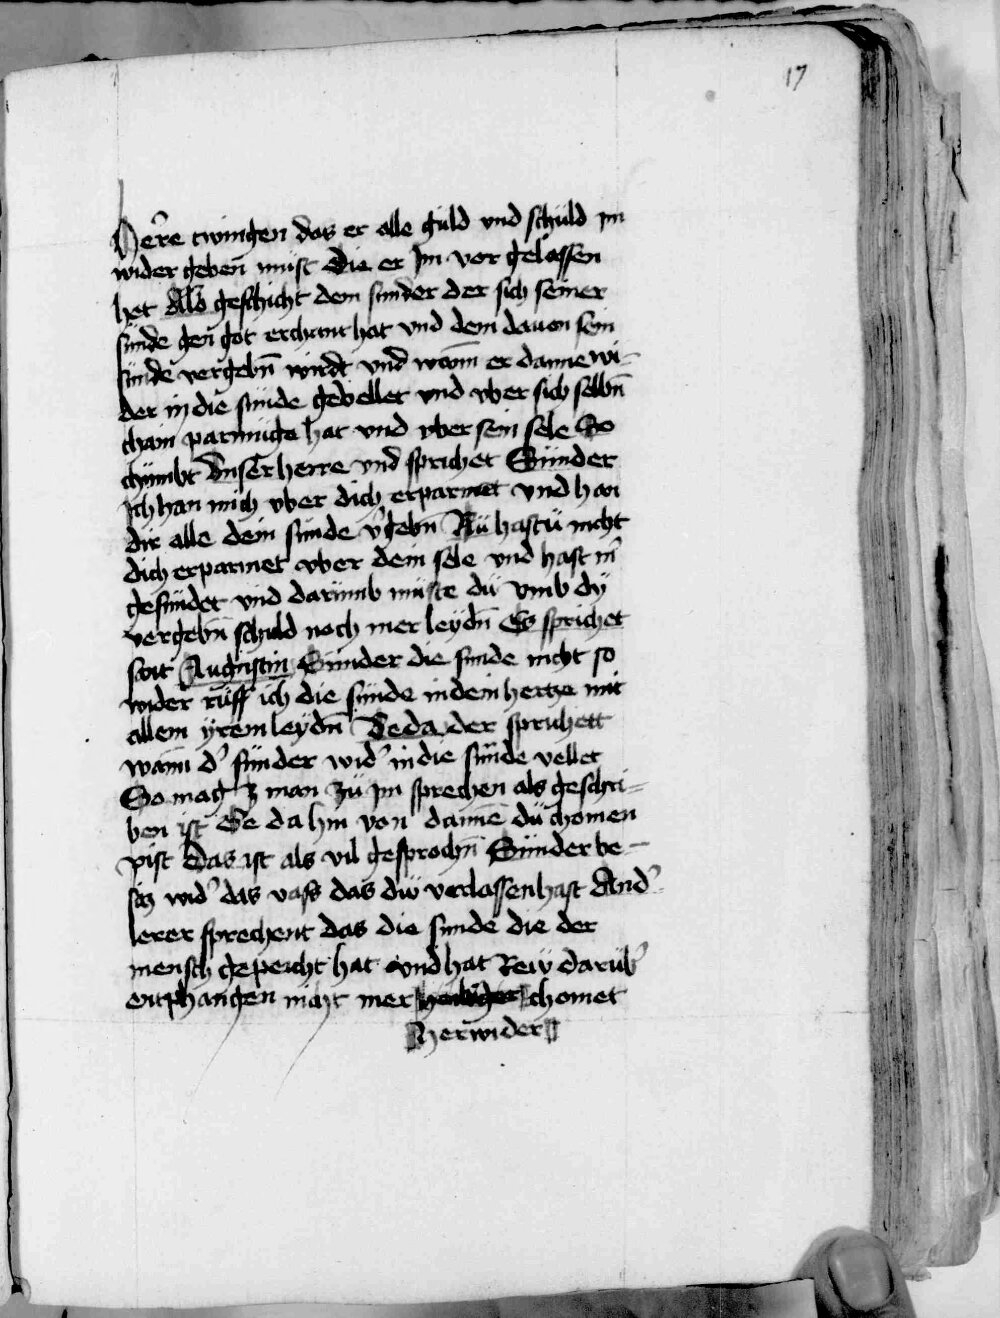 17
Herre twingen das er alle guld vnd schuld im
wider geben must Die er Im vor gelassen
het Als geschicht dem sunder der sich seiner
sunde gen got erchant hat vnd dem dauon sein
sunde vergebn̄ wirdt vnd wann er danne wi-
der in die sunde gevellet vnd vber sich selbn̄
chain parmunge hat vnd vber sein sele So
chumbt vnser herre vnd sprichet Sunder
Ich han mich vber dich erparmet vnd han
dir alle dein sunde v'gebn̄ Nu hastu nicht
dich erparmet vber dein sele vnd hast
gesundet vnd darumb muste du vmb dy
vergebn̄ schuld noch mer leydn̄ Es sprichet
sant Augustin Sunder die sunde nicht so
wider ruff ich die sunde in dein hertze mit
allem yrem leydn̄ Beda der sprichett
wann d' sunder wid' in die sunde vellet
So mag man zu im sprechen als geschri-
ben ist Ge da hin von danne du chomen
pist Das ist als vil gesprochn̄ Sunder be-
sicz wid' das vass das du verlassen hast And'
lerer sprechent das die sunde die der
mensch gepeicht hat vnd hat Rew darub'
enphangen nicht mer chomet
Herwider